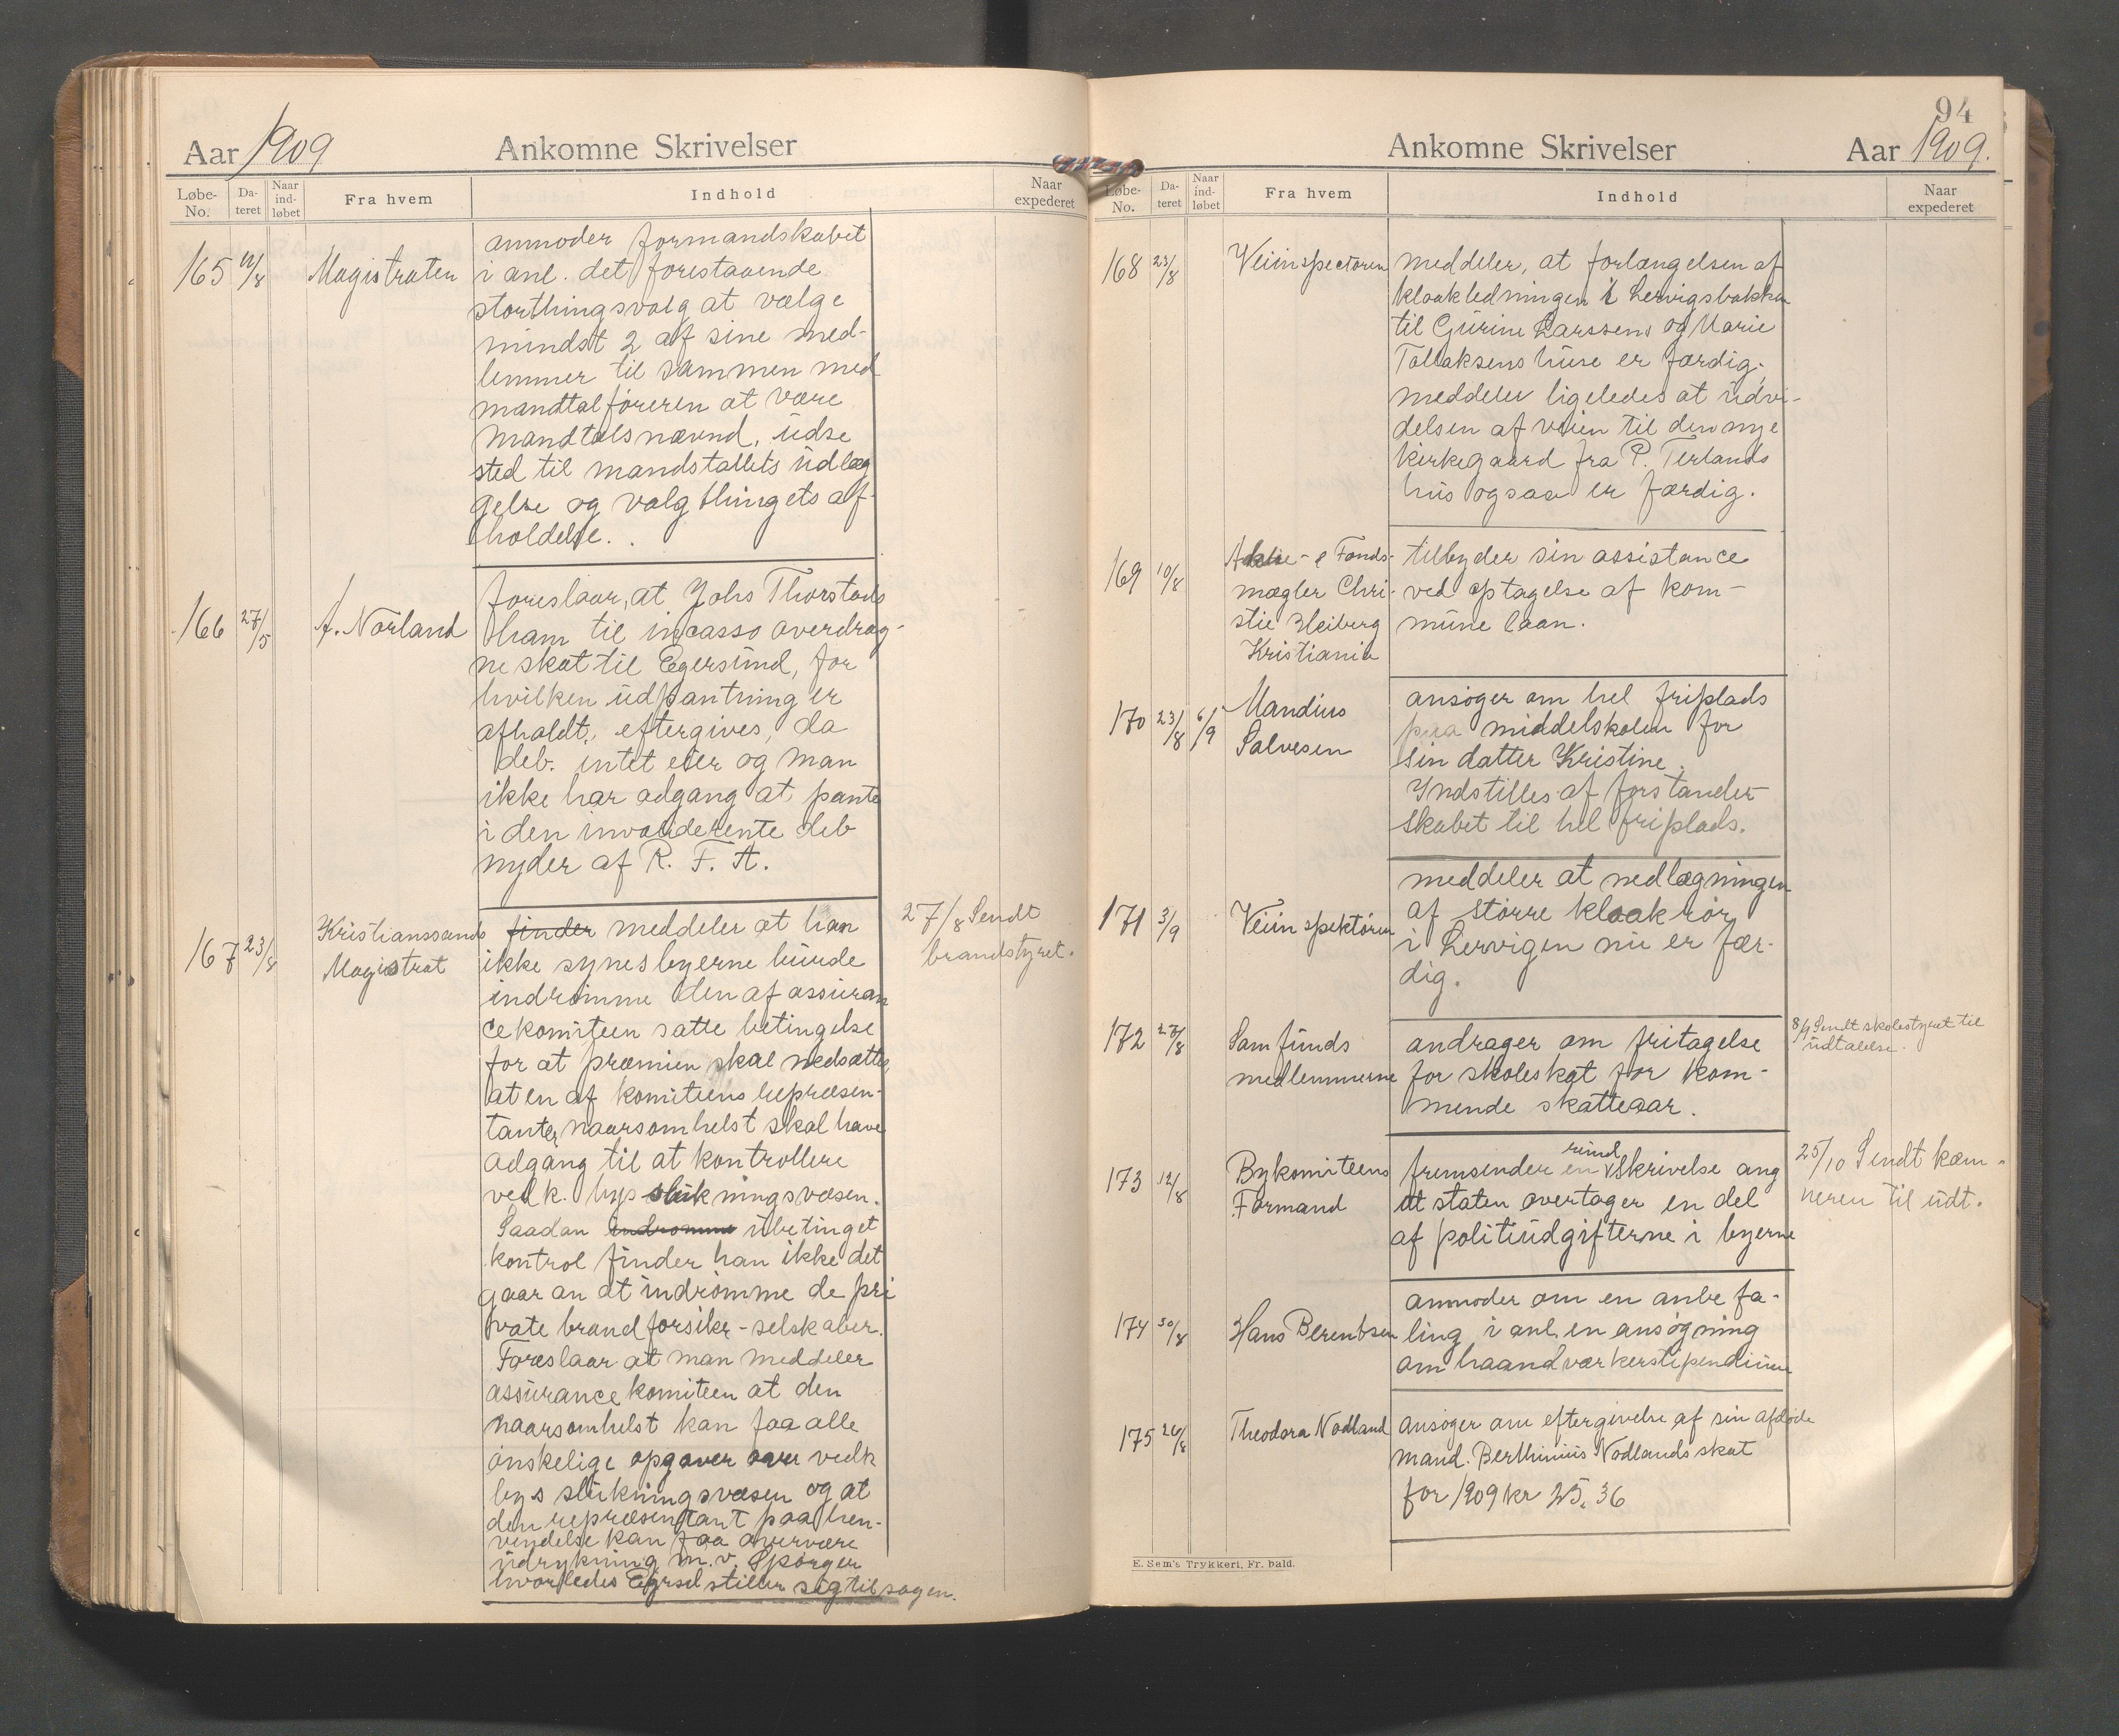 Aar 1909
Ankomne Skrivelser
Løbe-No.
Da-teret
Naar ind-løbet
Fra hvem
Indhold
Naar expederet
165 12/8
Magistraten
anmoder formandskabet
i anl. det forestaaende
storthingsvalg at vælge
mindst 2 af sine med-
lemmer til sammen med
mandtalføreren at være
mandtalsnævnd, udse
sted til mandstallets udlæg
gelse og valgthingets af-
holdelse.
166 27/5
A. Norland
foreslaar, at Johs Thorstads
ham til incasso overdrag-
ne skat til Egersund, for
hvilken udpantning er
afholdt, eftergives, da
deb. intet eier og man
ikke har adgang at pante
i den invaliderente deb
nyder af R. F. A.
167 23/8
Kristianssands
Magistrat
finder meddeler at han
ikke synes byerne burde
indrømme den af assuran
cekomiteen satte betingelse
for at præmien skal nedsættes,
at en af komiteens repræsen-
tanter naarsomhelst skal have
adgang til at kontrollere
vedk. bys slukningsvæsen.
Saadan indrømme ubetinget
kontrol finder han ikke det
gaar an at indrømme de pri
vate brandforsikr-selskaber.
Foreslaar at man meddeler
assurancekomiteen at den
naarsomhelst kan faa alle
ønskelige opgaver over vedk
bys slukningsvæsen og at
den repræsentant paa hen-
vendelse kan faa overvære
udrykning m.v. Spørger
hvorledes Egrsd stiller sig til sagen.
27/8 Sendt
brandstyret.
94
Ankomne Skrivelser
Aar 1909.
Løbe-No.
Da-teret
Naar ind-løbet
Fra hvem
Indhold
Naar expederet
168 23/8
Veiinspectøren
meddeler, at forlængelsen af
kloakledningen i Lervigsbakken
til Gurine Larssens og Marie
Tollaksens huse er færdig;
meddeler ligeledes at udvi-
delsen af veien til den nye
kirkegaard fra P. Terlands
hus ogsaa er færdig.
169 10/8
Aktie- & Fonds-
mægler Chri-
stie Heiberg
Kristiania
tilbyder sin assistance
ved optagelse af kom-
mune laan.
170 23/8 6/9
Mandius
Salvesen
ansøger om hel friplads
paa middelskolen for
sin datter Kristine.
Indstilles af forstander-
skabet til hel friplads.
171 3/9
Veiinspektøren
meddeler at nedlægningen
af større kloakrør
i Lervigen nu er fær-
dig.
172 27/8
Samfunds
medlemmerne
andrager om fritagelse
for skoleskat for kom-
mende skatteaar.
8/9 Sendt skolestyret til
udtalelse.
173 12/8
Bykomiteens
Formand
fremsender en rundskrivelse ang
at staten overtager en del
af politiudgifterne i byerne
25/10 Sendt kæm-
neren til udt.
174 30/8
Hans Berentsen
anmoder om en anbefa-
ling i anl. en ansøgning
om haandværkerstipendium
175 26/8
Theodora Nodland
ansøger om eftergivelse af sin afdøde
mand. Berthinius Nodlands skat
for 1909 kr 25.36
E. Sem's Trykkeri, Fr. hald.